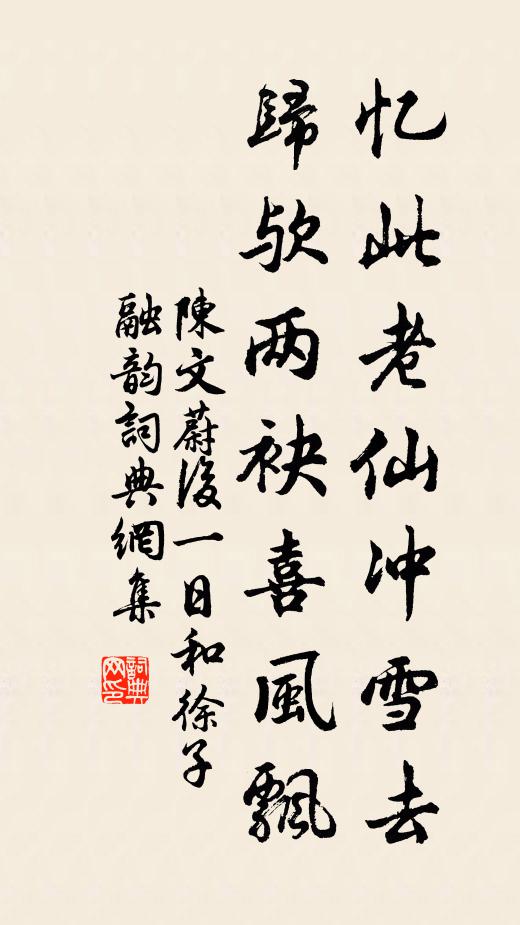 忆此老仙冲雪去
歸欤两袂喜風飄
陳文蔚後一日和徐子
融韵詞典網集
詞典网印